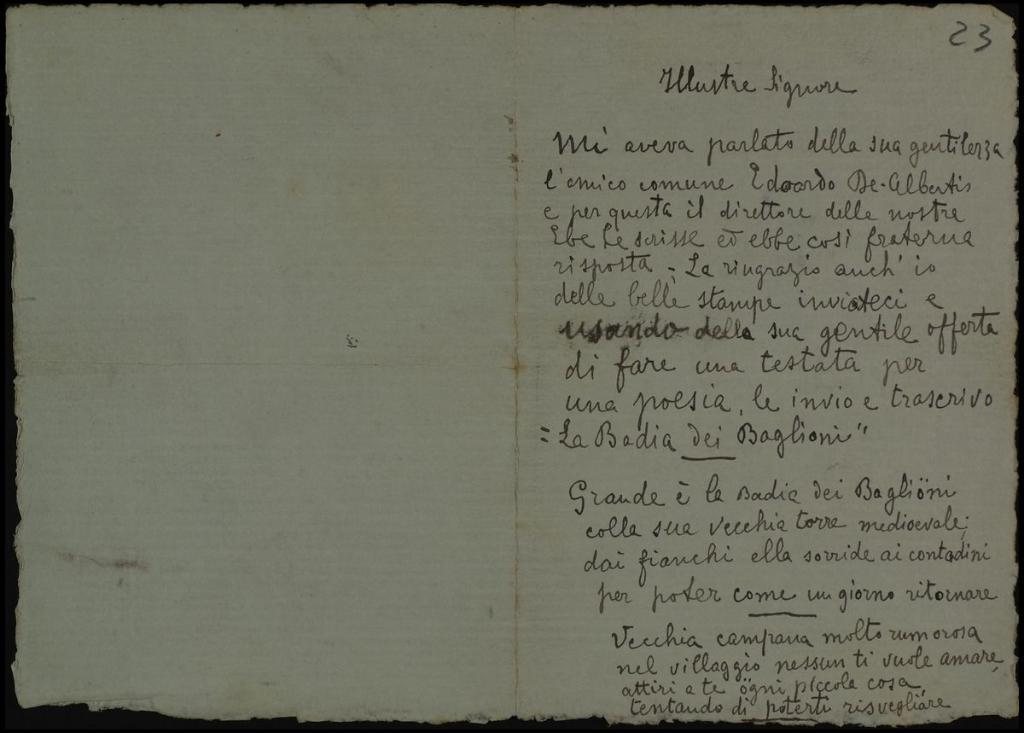 23
Illustre Signore
Mi aveva parlato della sua gentilezza
l'amico comune Edoardo De-Albertis
e per questa il direttore della nostra
Ebe Le scrisse ed ebbe così fraterna
risposta; La ringrazio anch' io
delle belle stampe inviateci e
usando della sua gentile offerta
di fare una testata per
una poesia, le invio e trascrivo
= La Badia dei Baglioni"
Grande è la Badia dei Baglïoni
colla sua vecchia torre medioevale;
dai fianchi ella sorride ai contadini
per poter come un giorno ritornare
Vecchia campana molto rumorosa
nel villaggio nessun ti vuole amare,
attiri a te ögni piccola cosa,
tentando di poterti risvegliare